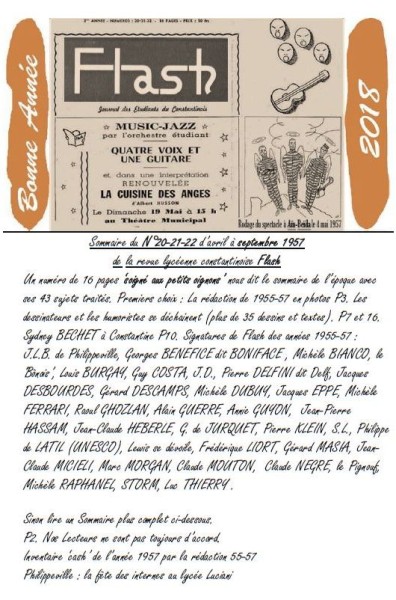 2ème ANNEE - NUMEROS : 20-21-22 - 16 PAGES - PRIX : 50 frs
Flash
Journal des Etudiants du Constantinois
Bonne Année
2018
MUSIC-JAZZ
par l'orchestre étudiant
QUATRE VOIX ET
UNE GUITARE
et, dans une interprétation
RENOUVELÉE
LA CUISINE DES ANGES
d'Albert HUSSON
Le Dimanche 19 Mai à 15 h
au Théatre Municipal
Rodage du spectacle à Aïn-Beïda le 4 mai 1957
Sommaire du N°20-21-22 d'avril à septembre 1957
de la revue lycéenne constantinoise Flash
Un numéro de 16 pages 'soigné aux petits oignons' nous dit le sommaire de l'époque avec
ses 43 sujets traités. Premiers choix : La rédaction de 1955-57 en photos P3. Les
dessinateurs et les humoristes se déchainent (plus de 35 dessins et textes). P7 et 16.
Sydney BECHET à Constantine P10. Signatures de Flash des années 1955-57 :
J.L.B. de Philippeville, Georges BENEFICE dit BONIFACE, Michèle BIANCO, le
Bônois', Louis BURGAY, Guy COSTA, J.D., Pierre DELFINI dit Delf, Jacques
DESBOURDES, Gérard DESCAMPS, Michèle DUBUY, Jacques EPPE, Michèle
FERRARI, Raoul GHOZLAN, Alain GUERRE, Annie GUYON, Jean-Pierre
HASSAM, Jean-Claude HEBERLE, G. de JURQUET, Pierre KLEIN, S.L., Philippe
de LATIL (UNESCO), Lewis se dévoile, Frédérique LIORT, Gérard MASIA, Jean-
Claude MICIELI, Marc MORGAN, Claude MOUTON, Claude NEGRE, le Pignouf,
Michèle RAPHANEL, STORM, Luc THIERRY .
Sinon lire un Sommaire plus complet ci-dessous.
P2. Nos Lecteurs ne sont pas toujours d'accord.
Inventaire 'cash' de l'année 1957 par la rédaction 55-57
Philippeville : la fête des internes au lycée Luciani